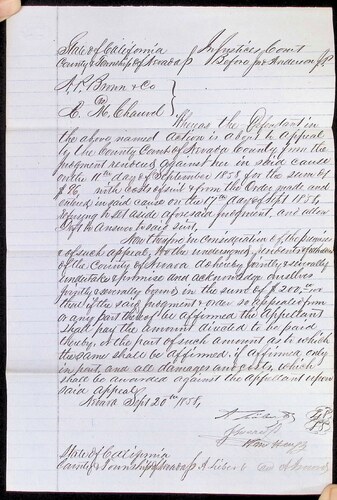 State of California
County & Township of Nevada
In Justices Court
Before Jno Anderson J P
A. P. Brown & Co
vs
E. M. Chaurd
Whereas the Defendant in
the above named action is about to appeal
to the County Court of Nevada County from the
judgment rendered against her in said cause
on the 11th day of September 1858 for the sum of
$96, with costs of suit & from the Order made and
entered in said cause on the 17th day of Sept 1858,
refusing to set aside aforesaid judgment, and allow
Deft to answer to said suit,
Now therefore in Consideration of the premises
& of such appeal, We the undersigned, residents of
of the County of Nevada do hereby jointly & severally
undertake & promise and acknowledge ourselves
jointly & severally bound in the sum of $200.
that if the said judgment & order so appealed from
or any part thereof be affirmed the Appellant
shall pay the amount directed to be paid
thereby, or the part of such amount as to which
the same shall be affirmed, if affirmed only
in part, and all damages and costs, which
shall be awarded against the appellant upon
said Appeal,
Nevada Sept 20th 1858,
State of California
County & Township of Nevada